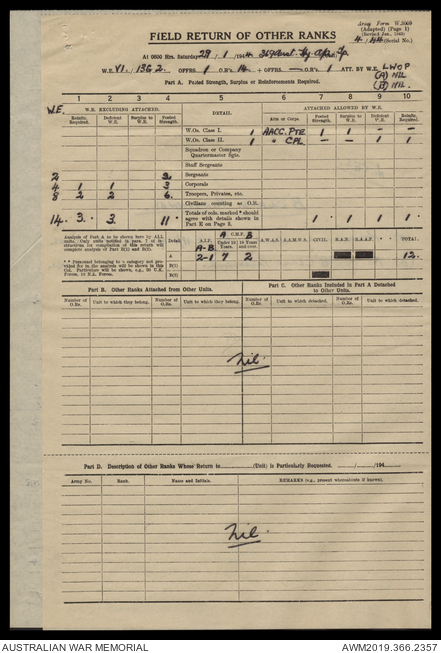 Army Form W.3009
(Adapted) (Page 1)
(Revised Jan., 1943)
4/44 (Serial No.)
FIELD RETURN OF OTHER RANKS
At 0600 Hrs. Saturday 29 / 1 /1944
W.E. VI. 13G 2. OFFRS. 1 O.R's 14 + OFFRS. — O.R's 1 ATT. BY W.E. LWOP
(A) NIL
(B) NIL.
Part A. Posted Strength, Surplus or Reinforcements Required.
1 2 3 4 5 6 7 8 9 10
W.E. W.E. EXCLUDING ATTACHED. DETAIL ATTACHED ALLOWED BY W.E.
Reinfts. Required. Deficient W.E. Surplus to W.E. Posted Strength. Arm or Corps. Posted Strength. Surplus to W.E. Deficient W.E. Reinfts. Required.
W.Os. Class I. 1 AACC. PTE 1 1 — —
W.Os. Class II. 1 " CPL — — 1 1
Squadron or Company Quartermaster Sgts.
Staff Sergeants
2 Sergeants
4 1 1 3 Corporals
8 2 2 6. Troopers, Privates, etc.
Civilians counting as O.R.
14. 3. 3. 11 Totals of cols. marked * should agree with details shown in Part E on Page 2. 1 1 1 1
Analysis of Part A to be shown here by ALL units. Only units notified in para. 7 of instructions for compilation of this return will complete analysis of Part B(1) and B(2).
Detail. A.I.F. C.M.F. A.W.A.S. A.A.M.W.S. CIVIL R.A.N. R.A.A.F. * * TOTAL
A-B A B
A 2-1 7 2 12.
B(1)
B(2)
Part B. Other Ranks Attached from Other Units.
Part C. Other Ranks Included in Part A Detached to Other Units.
Number of O.Rs. Unit to which they belong. Number of O.Rs. Unit to which they belong. Number of O.Rs. Unit to which detached. Number of O.Rs. Unit to which detached.
Nil.
Part D. Description of Other Ranks Whose Return to (Unit) is Particularly Requested. / /194
Army No. Rank. Name and Initials. REMARKS (e.g., present whereabouts if known).
Nil.
AUSTRALIAN WAR MEMORIAL AWM2019.366.2357